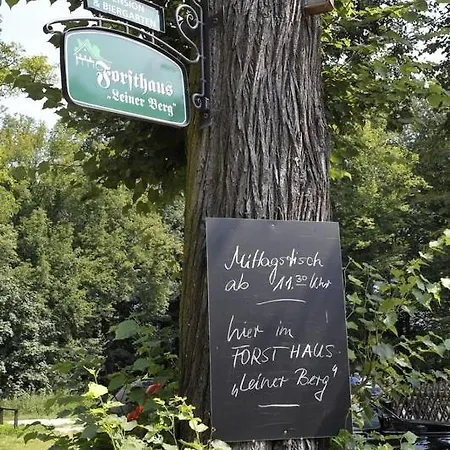 PENSION
& BIERGARTEN
Forsthaus
„Leiner Berg"
Mittagstisch
ab 11.30 Uhr
hier im
FORST HAUS
„Leiner Berg"